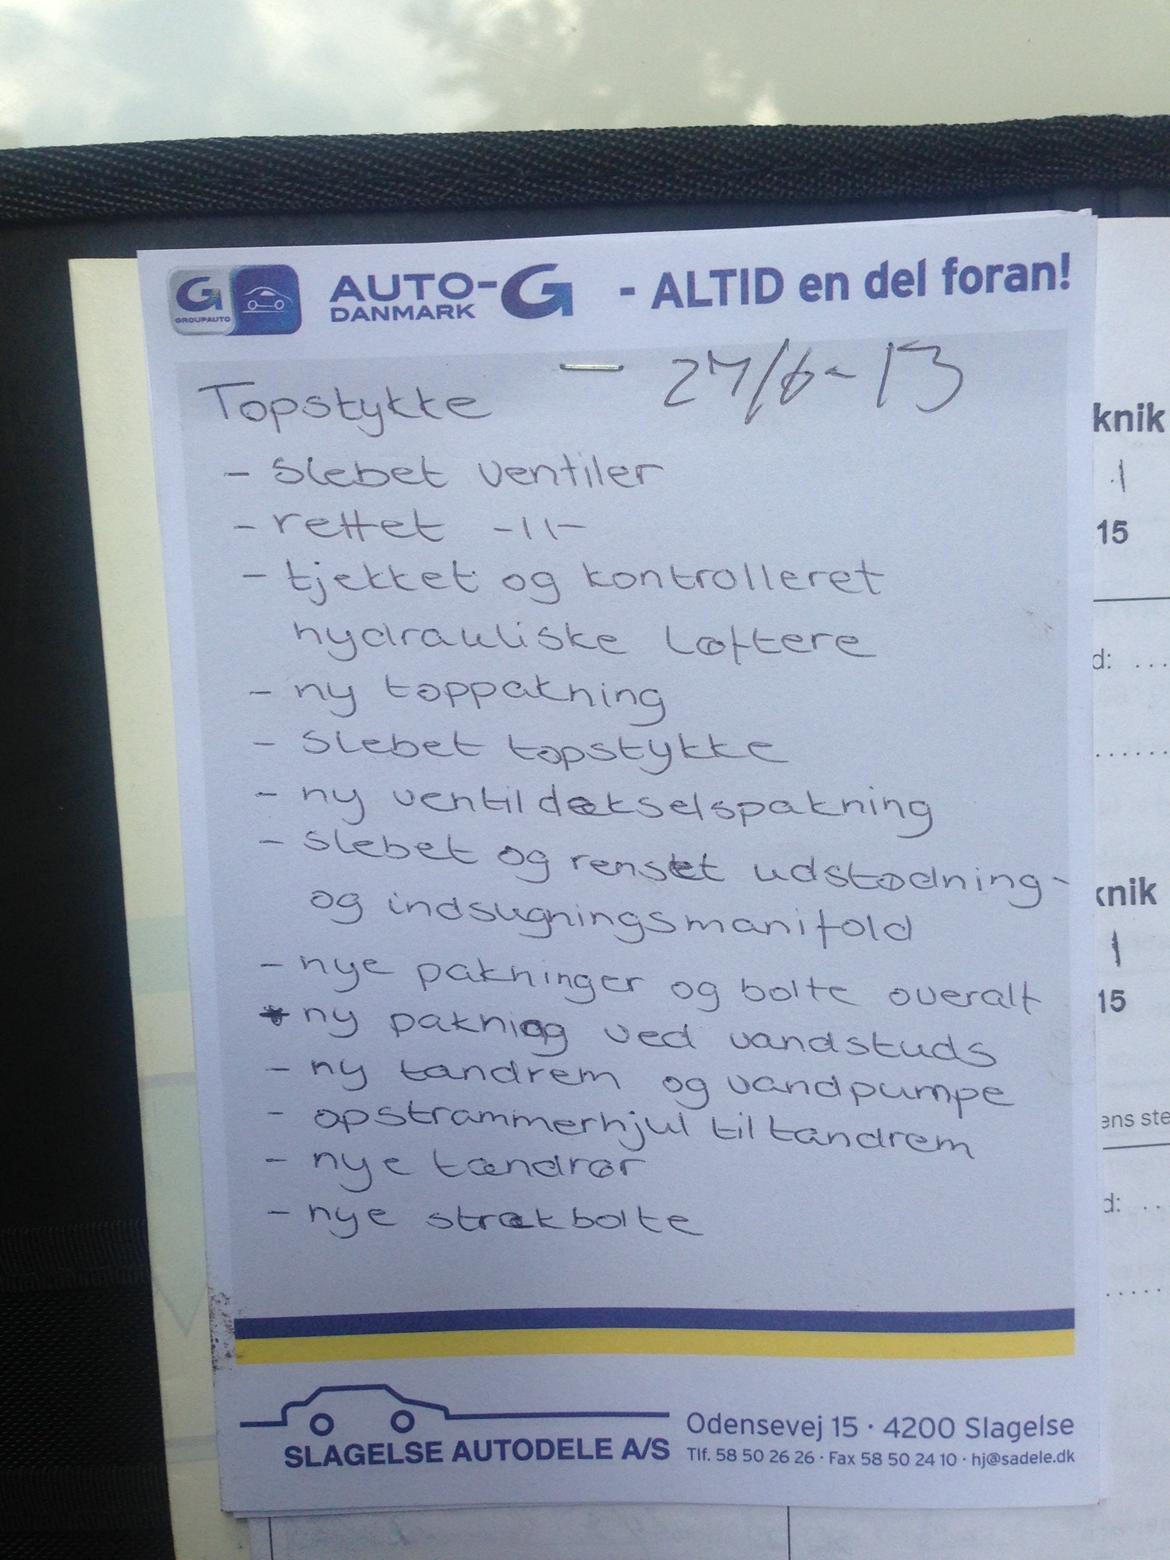 GROUPAUTO
AUTO-G
DANMARK
- ALTID en del foran!
27/6-13
Topstykke
- slebet ventiler
- rettet -11-
- tjekket og kontrolleret
hydrauliske løftere
- ny toppakning
- slebet topstykke
- ny ventildækselspakning
- slebet og renset udstødning-
og indsugningsmanifold
- nye pakninger og bolte overalt
* ny pakning ved vandstuds
- ny tandrem og vandpumpe
- opstrammerhjul til tandrem
- nye tændrør
- nye strækbolte
SLAGELSE AUTODELE A/S
Odensevej 15 · 4200 Slagelse
Tlf. 58 50 26 26 · Fax 58 50 24 10 · hj@sadele.dk
knik
1
15
d: ...
.......
knik
1
15
ens ste
d: ..
.....